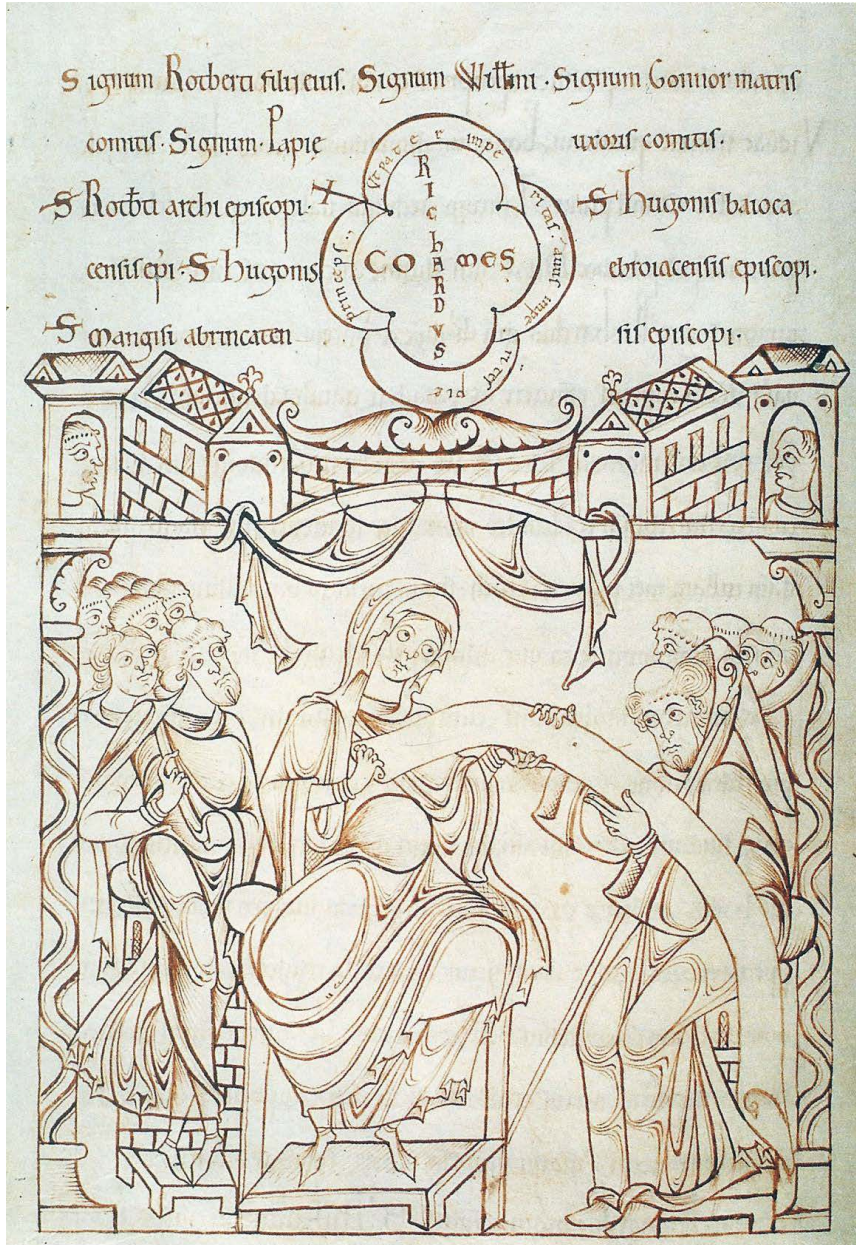 Signum Rotberti filii eius. Signum Willmi · Signum Gonnor matris
comitis · Signum · Papie uxoris comitis ·
S Rotbti archi episcopi · S hugonis baioca
censis epi · S hugonis ebroiacensis episcopi ·
S mangisi abrincaten sis episcopi ·
RIChARDVS
COMES
Vt pater imperitas.
princeps.